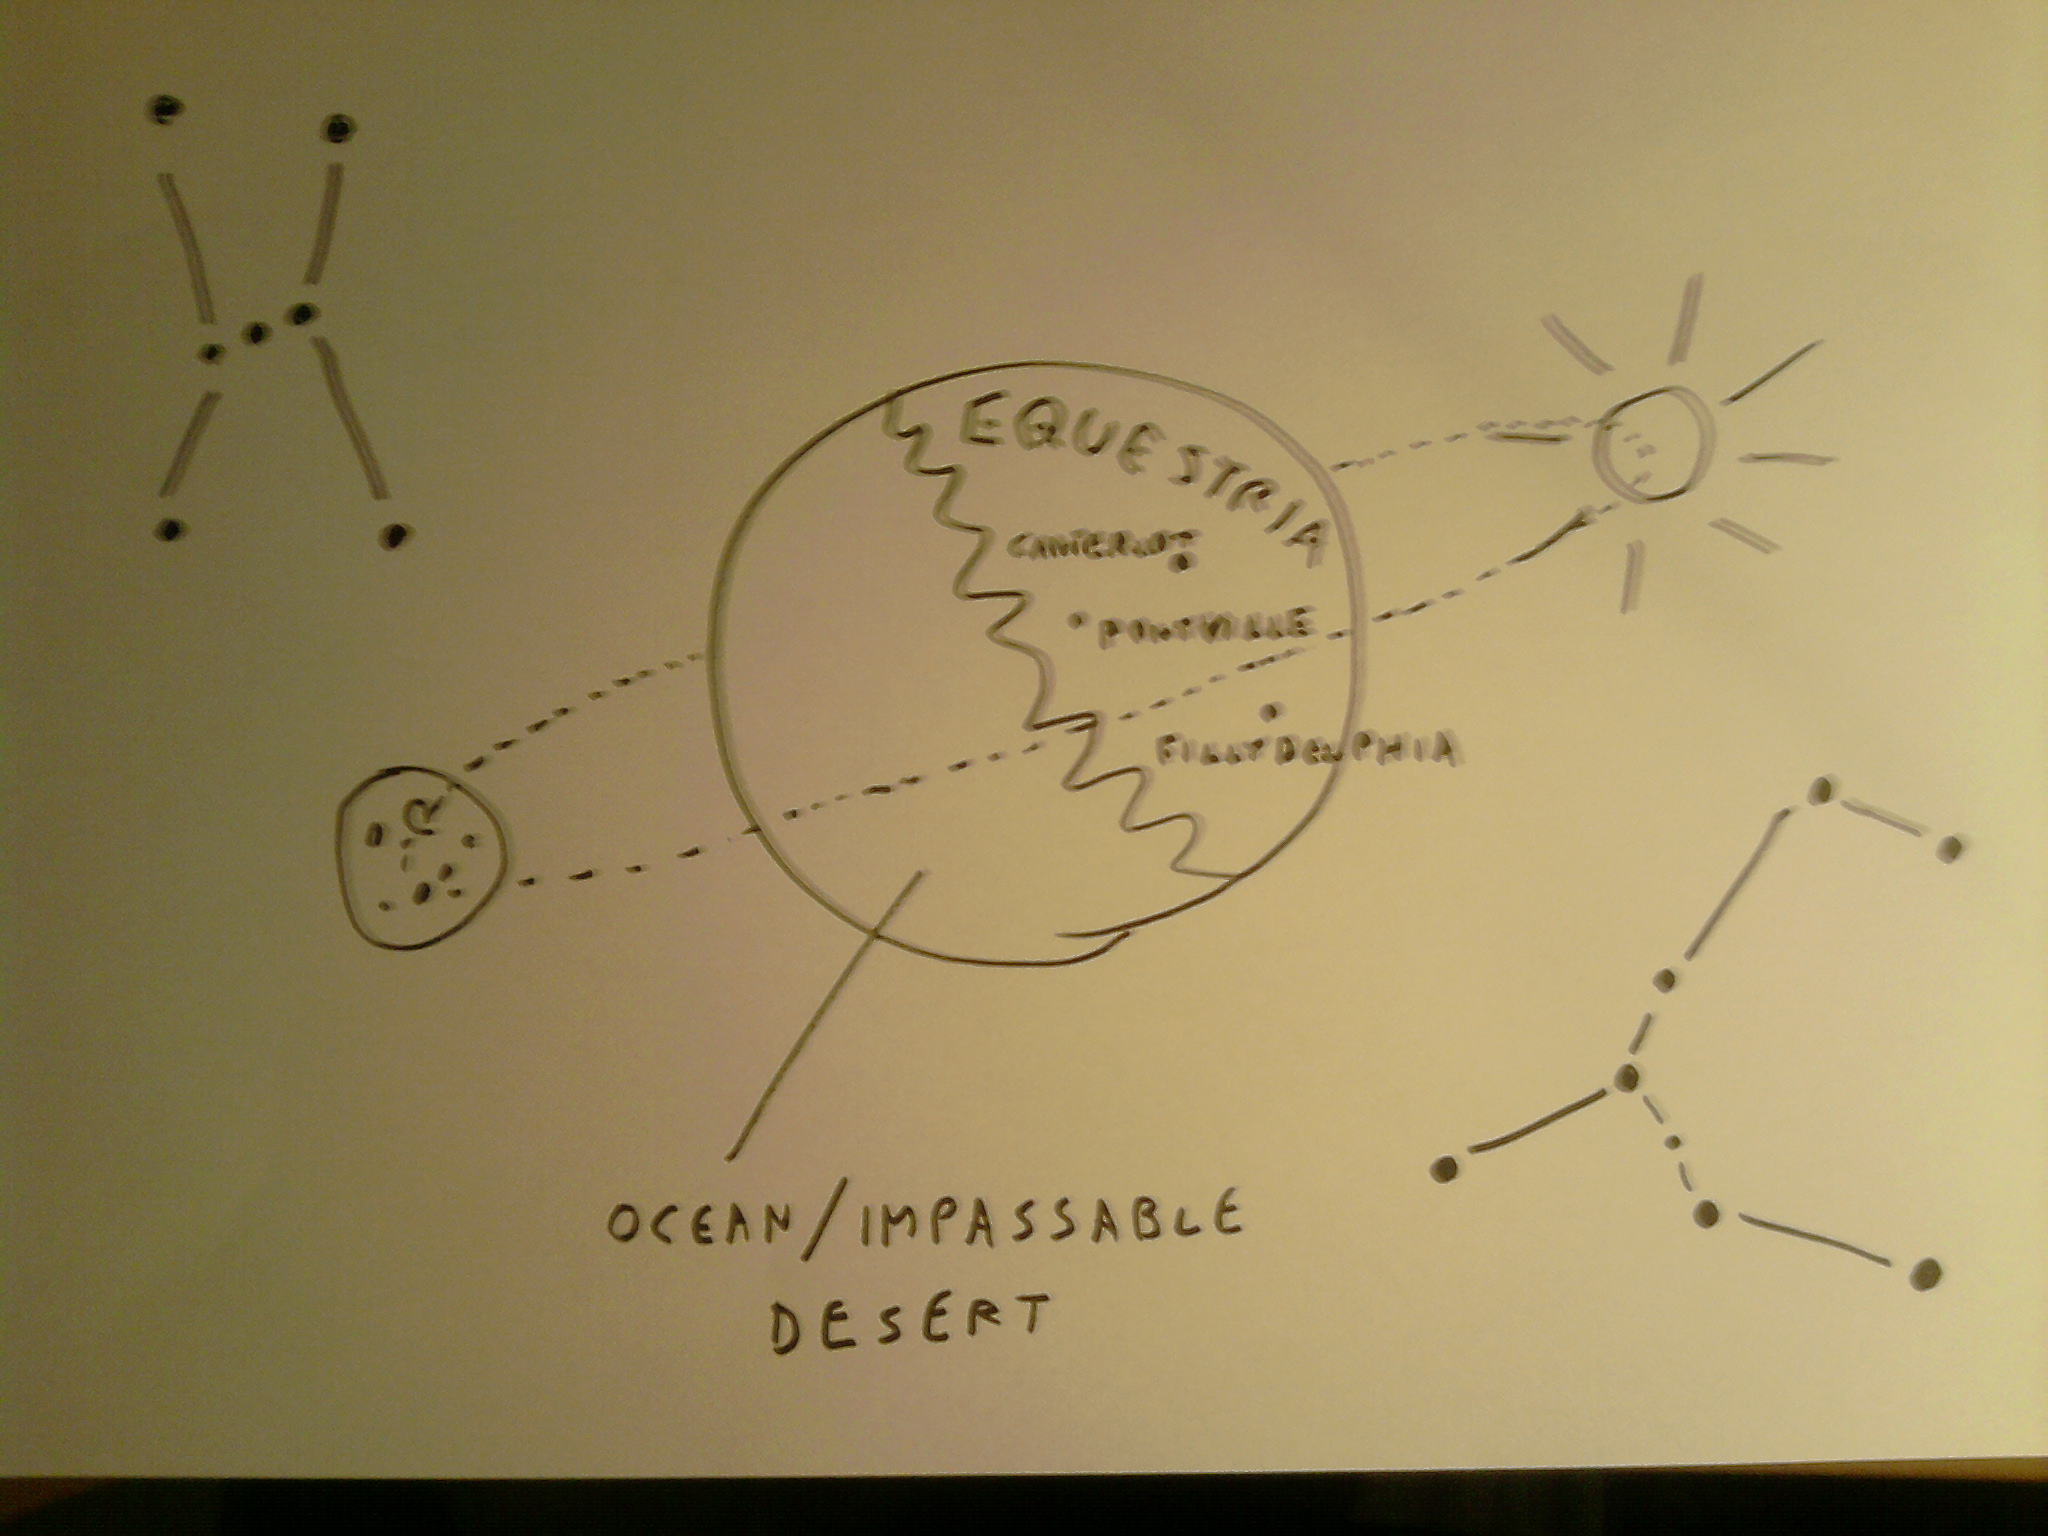 EQUESTRIA
CANTERLOT
PONYVILLE
FILLYDELPHIA
OCEAN/IMPASSABLE
DESERT